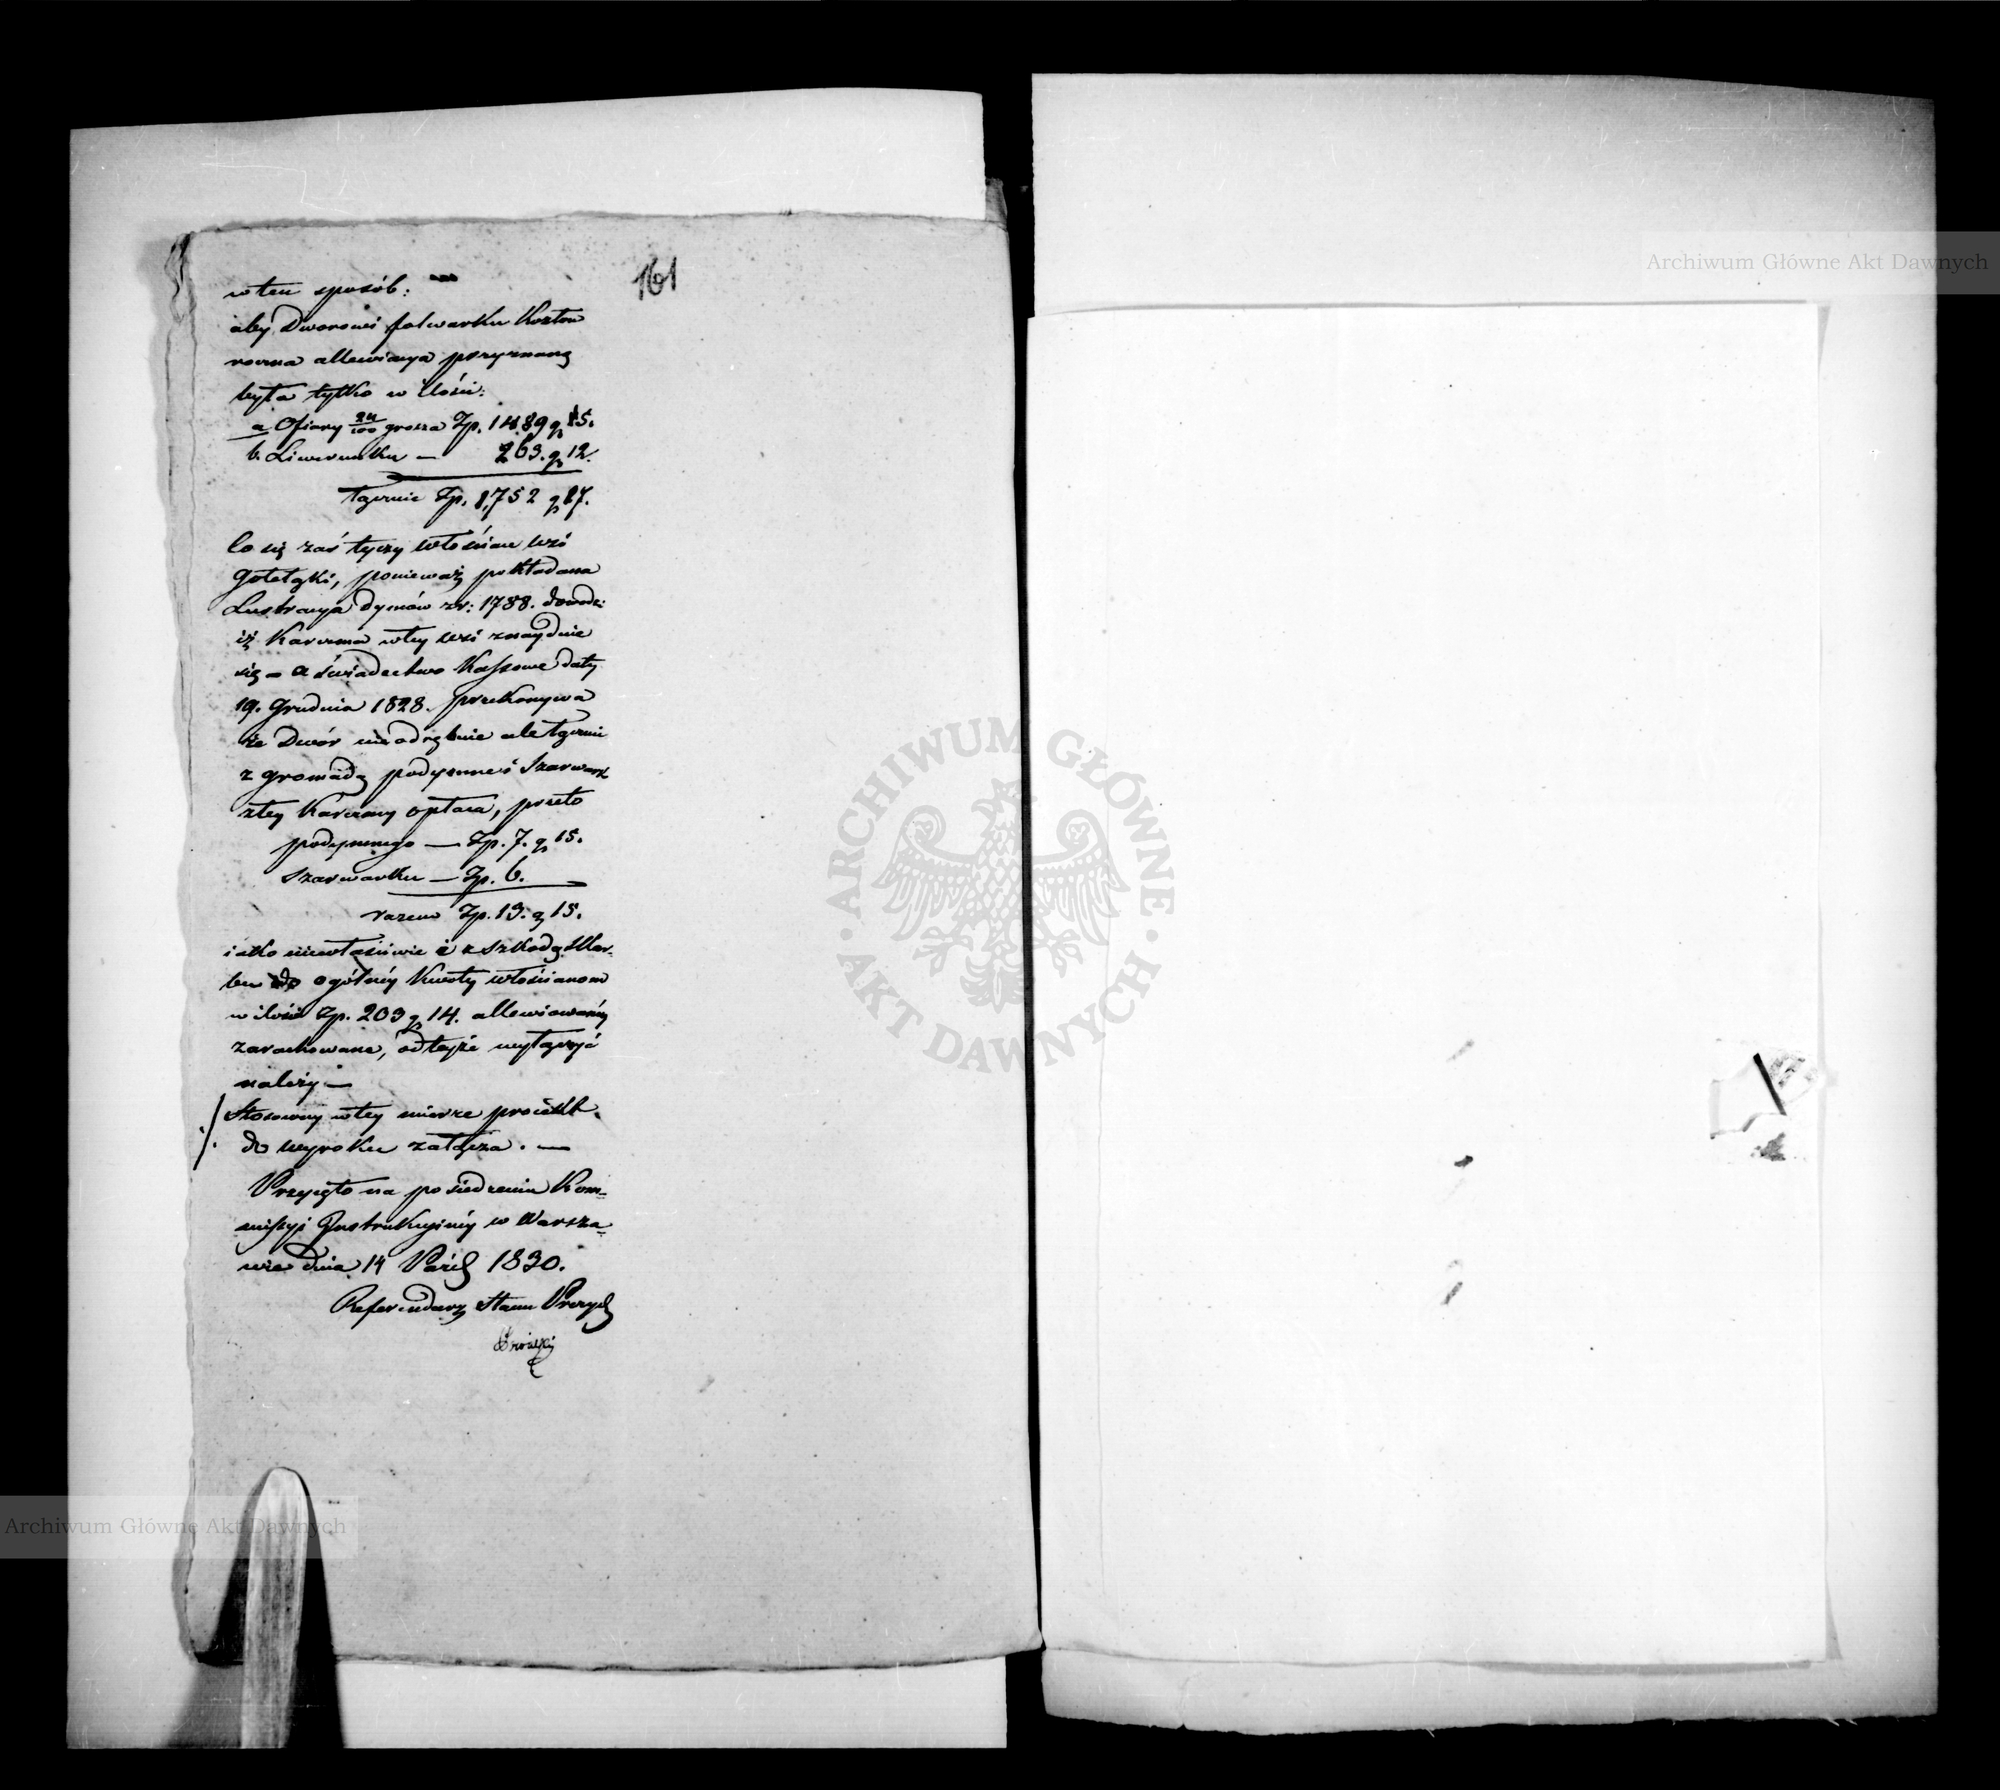 161
w ten sposób:
aby Dworowi folwarku Koztow
roczna allewiacya przyznaną
była tylko w ilości:
a Ofiary 24/100 grosza Zp. 1489 g 15.
b. Liwerunku — 263. g 12.
łącznie Zp. 1,752 g 27.
Co się zaś tyczy włościan wsi
ponieważ pokładana
Lustracya dymów z r: 1788. dowodzi
iż Karczma w tey wsi znayduie
się – a świadectwo Kassowe daty
19. Grudnia 1828. przekonywa
że Dwór nie odrębnie ale łącznie
z gromadą podymne i Szarwark
z tey Karczmy opłaca, przeto
podymnego — Zp. 7. g 15.
Szarwarku — Zp. 6.
razem Zp. 13. g 15.
iako niewłaściwie i z szkodą Skar-
bu do ogólnéy Kwoty włościanom
w ilości Zp. 203 g 14. allewiowanéy
zarachowane, od teyże wyłączyć
należy —
Stosowny w tey mierze proiekt
do wyroku załącza. —
Przyięto na posiedzeniu Kom-
missyi Instrukcyinéy w Warsza-
wie dnia 14 Paźd 1830.
Referendarz Stanu Prezyd
Archiwum Główne Akt Dawnych
ARCHIWUM GŁÓWNE · AKT DAWNYCH ·
Archiwum Główne Akt Dawnych